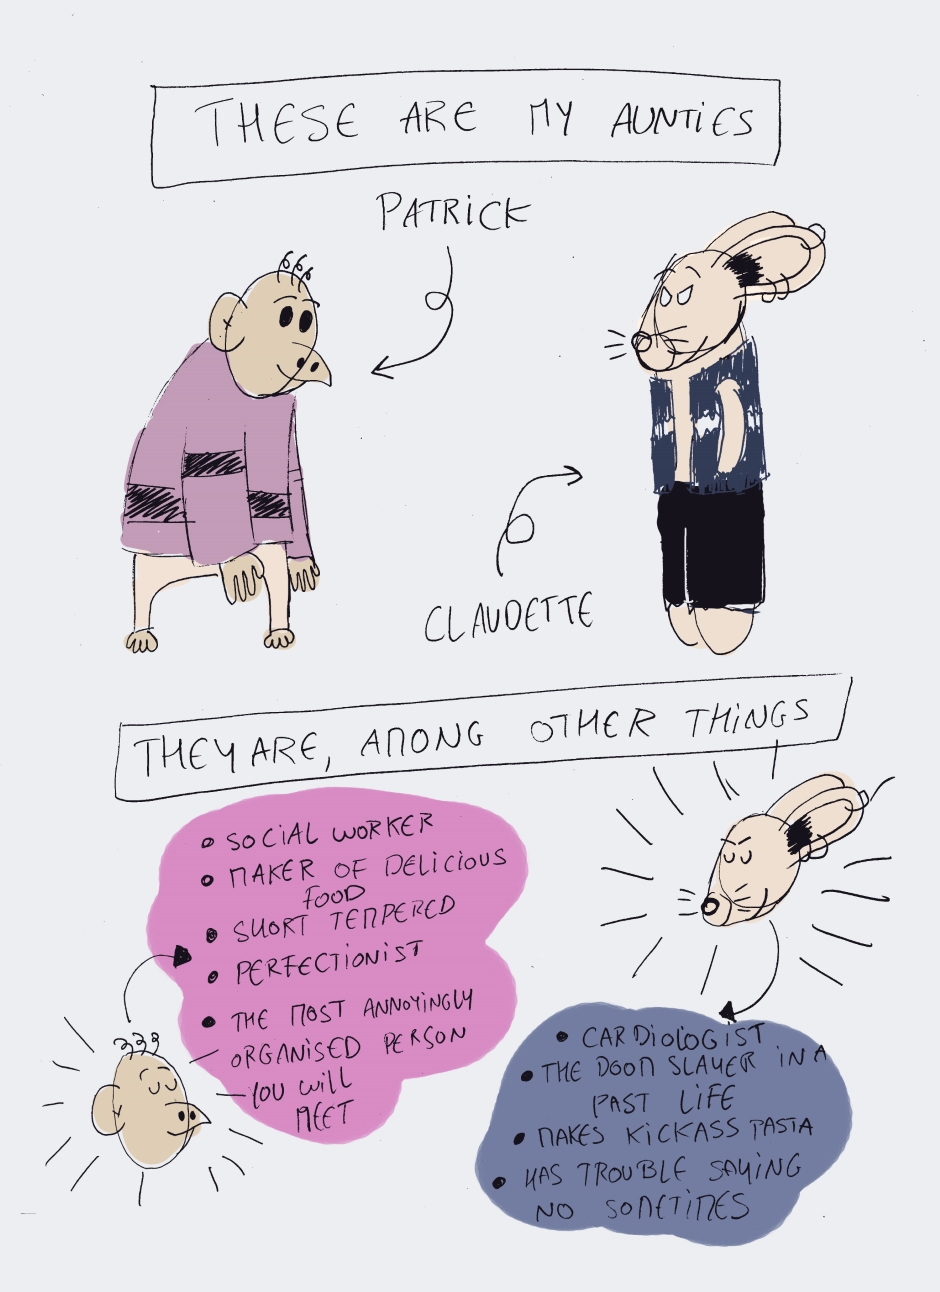 THESE ARE MY AUNTIES
PATRICK
CLAUDETTE
THEY ARE, AMONG OTHER THINGS
• SOCIAL WORKER
• MAKER OF DELICIOUS
FOOD
• SHORT TEMPERED
• PERFECTIONIST
• THE MOST ANNOYINGLY
ORGANISED PERSON
YOU WILL
MEET
• CARDIOLOGIST
• THE DOOM SLAYER IN A
PAST LIFE
• MAKES KICKASS PASTA
• HAS TROUBLE SAYING
NO SOMETIMES